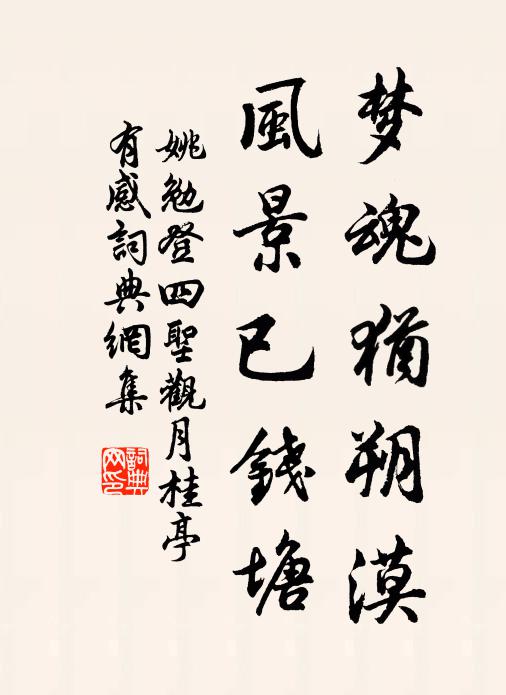 梦魂犹朔漠
風景已錢塘
姚勉登四聖觀月桂亭
有感詞典網集
詞典
网印